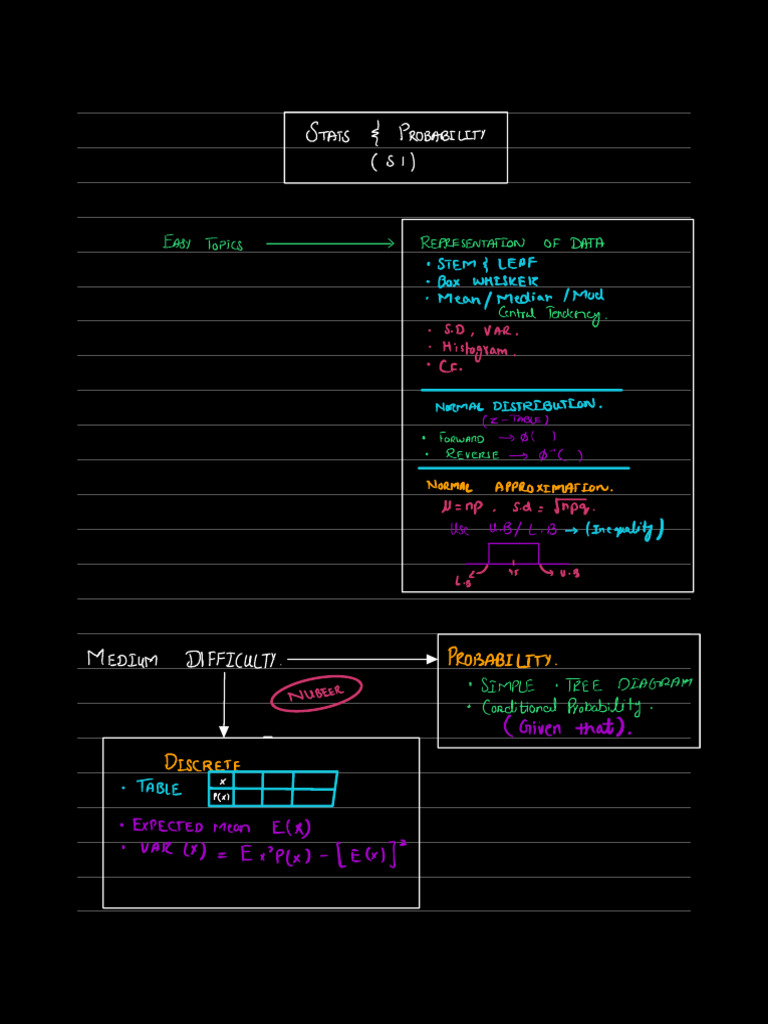 STATS & PROBABILITY
(S1)
EASY TOPICS
REPRESENTATION OF DATA
• STEM & LEAF
• BOX WHISKER
• Mean/Median/Mod
Central Tendency.
• S.D, VAR.
• Histogram.
• CF.
NORMAL DISTRIBUTION.
(Z-TABLE)
• FORWARD → Φ( )
• REVERSE → Φ⁻¹( )
NORMAL APPROXIMATION.
μ = np, s.d = √npq.
Use U.B/L.B → (Inequality)
L.B U.B
MEDIUM DIFFICULTY.
PROBABILITY.
• SIMPLE • TREE DIAGRAM
• Conditional Probability.
(Given that).
NUBEER
DISCRETE
• TABLE
x
P(x)
• EXPECTED Mean E(x)
• VAR (x) = Ex²P(x) - [E(x)]²